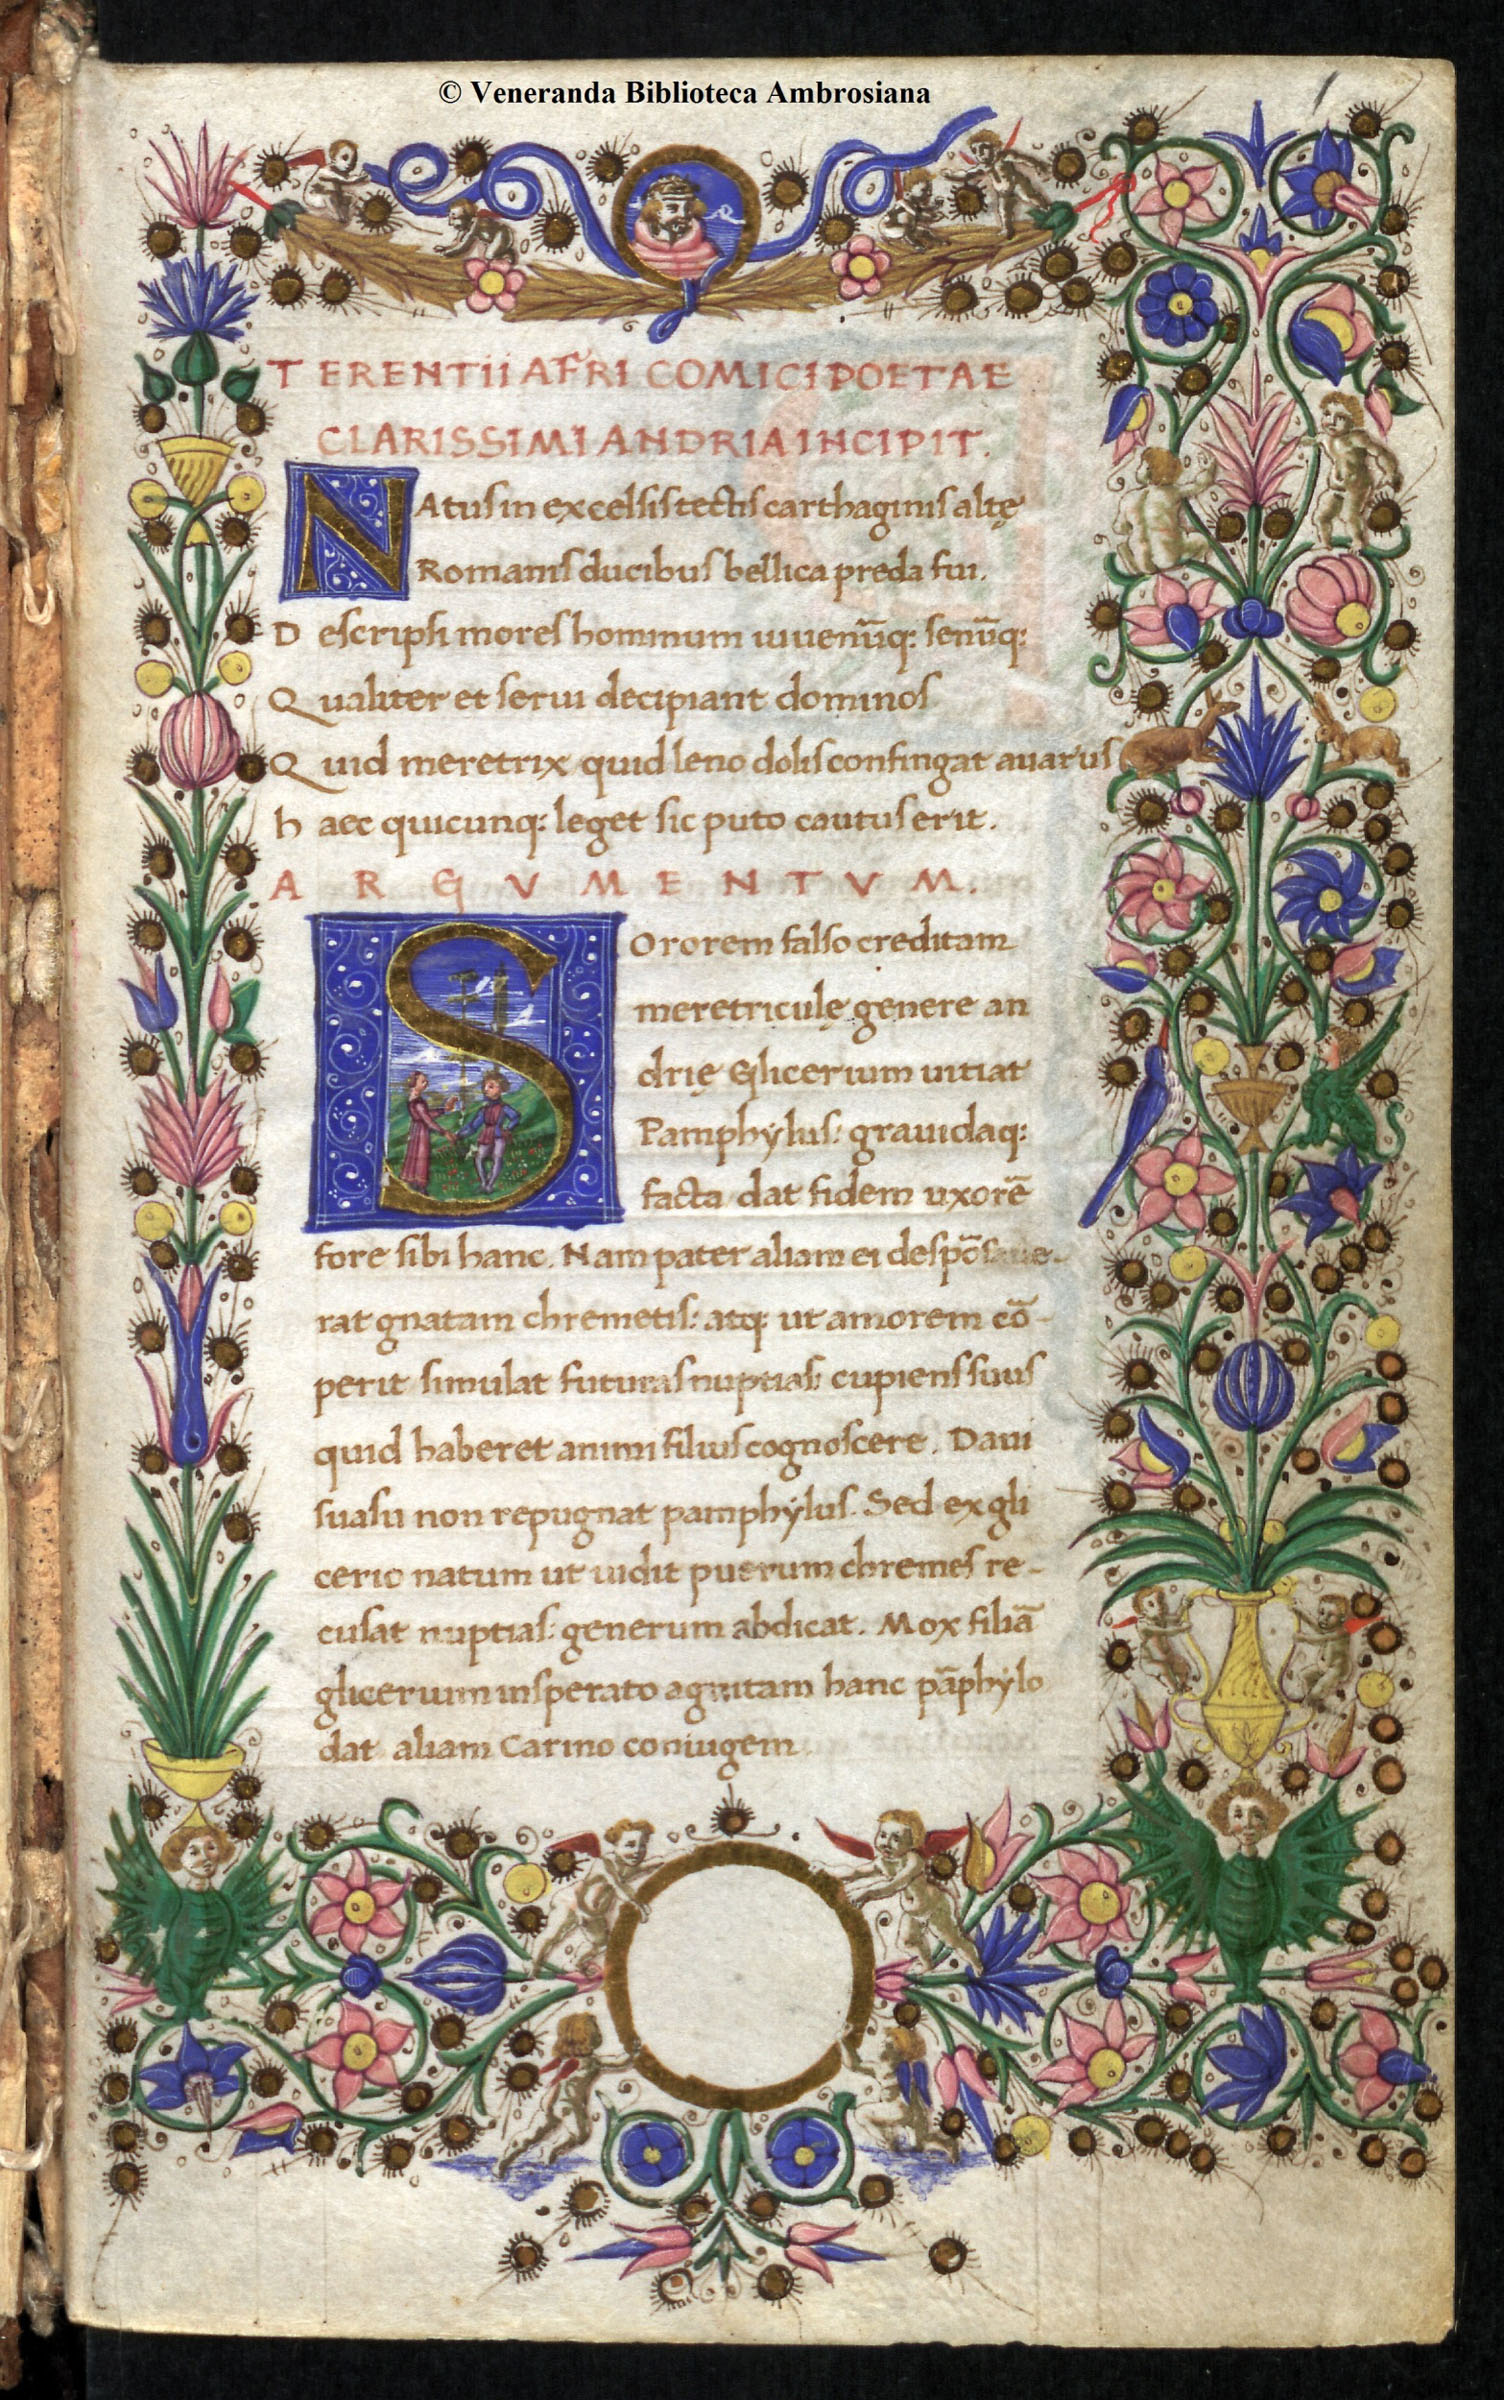 © Veneranda Biblioteca Ambrosiana
TERENTII AFRI COMICI POETAE
CLARISSIMI ANDRIA INCIPIT.
NAtus in excelsis tectis carthaginis altę
Romanis ducibus bellica preda fui.
Descripsi mores hominum iuuenūq: senūq:
Qualiter et serui decipiant dominos
Quid meretrix quid leno dolis confingat auarus
haec quicunq: leget sic puto cautus erit.
ARGVMENTVM.
SOrorem falso creditam
meretriculę genere an
drię Glicerium uitiat
Pamphylus: grauidaq:
facta dat fidem uxorē
fore sibi hanc. Nam pater aliam ei despōsaue-
rat gnatam chremetis: atq; ut amorem cō-
perit simulat futuras nuptias: cupiens suus
quid haberet animi filius cognoscere. Daui
suasu non repugnat pamphylus. Sed ex gli
cerio natum ut uidit puerum chremes re-
cusat nuptias: generum abdicat. Mox filiā
glicerium insperato agnitam hanc pāphylo
dat aliam Carino coniugem